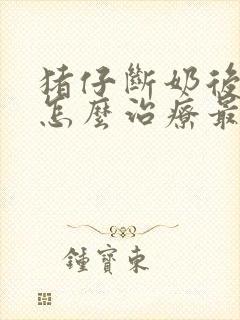 猪仔斷奶後
怎麼治療最
鍾寶東